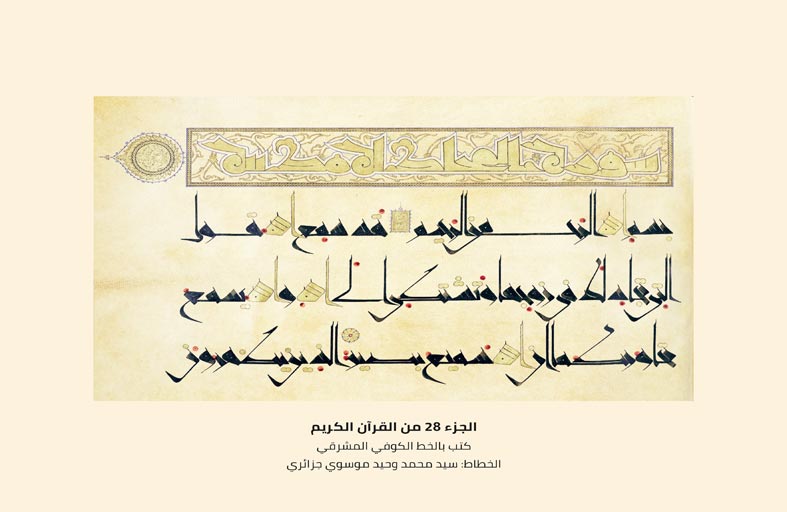 سورة المجادلة مدنية
بسم الله الرحمن الرحيم قد سمع الله قول
التي تجادلك في زوجها وتشتكي الى الله والله يسمع
تحاوركما ان الله سميع بصير الذين يظهرون
الجزء 28 من القرآن الكريم
كتب بالخط الكوفي المشرقي
الخطاط: سيد محمد وحيد موسوي جزائري